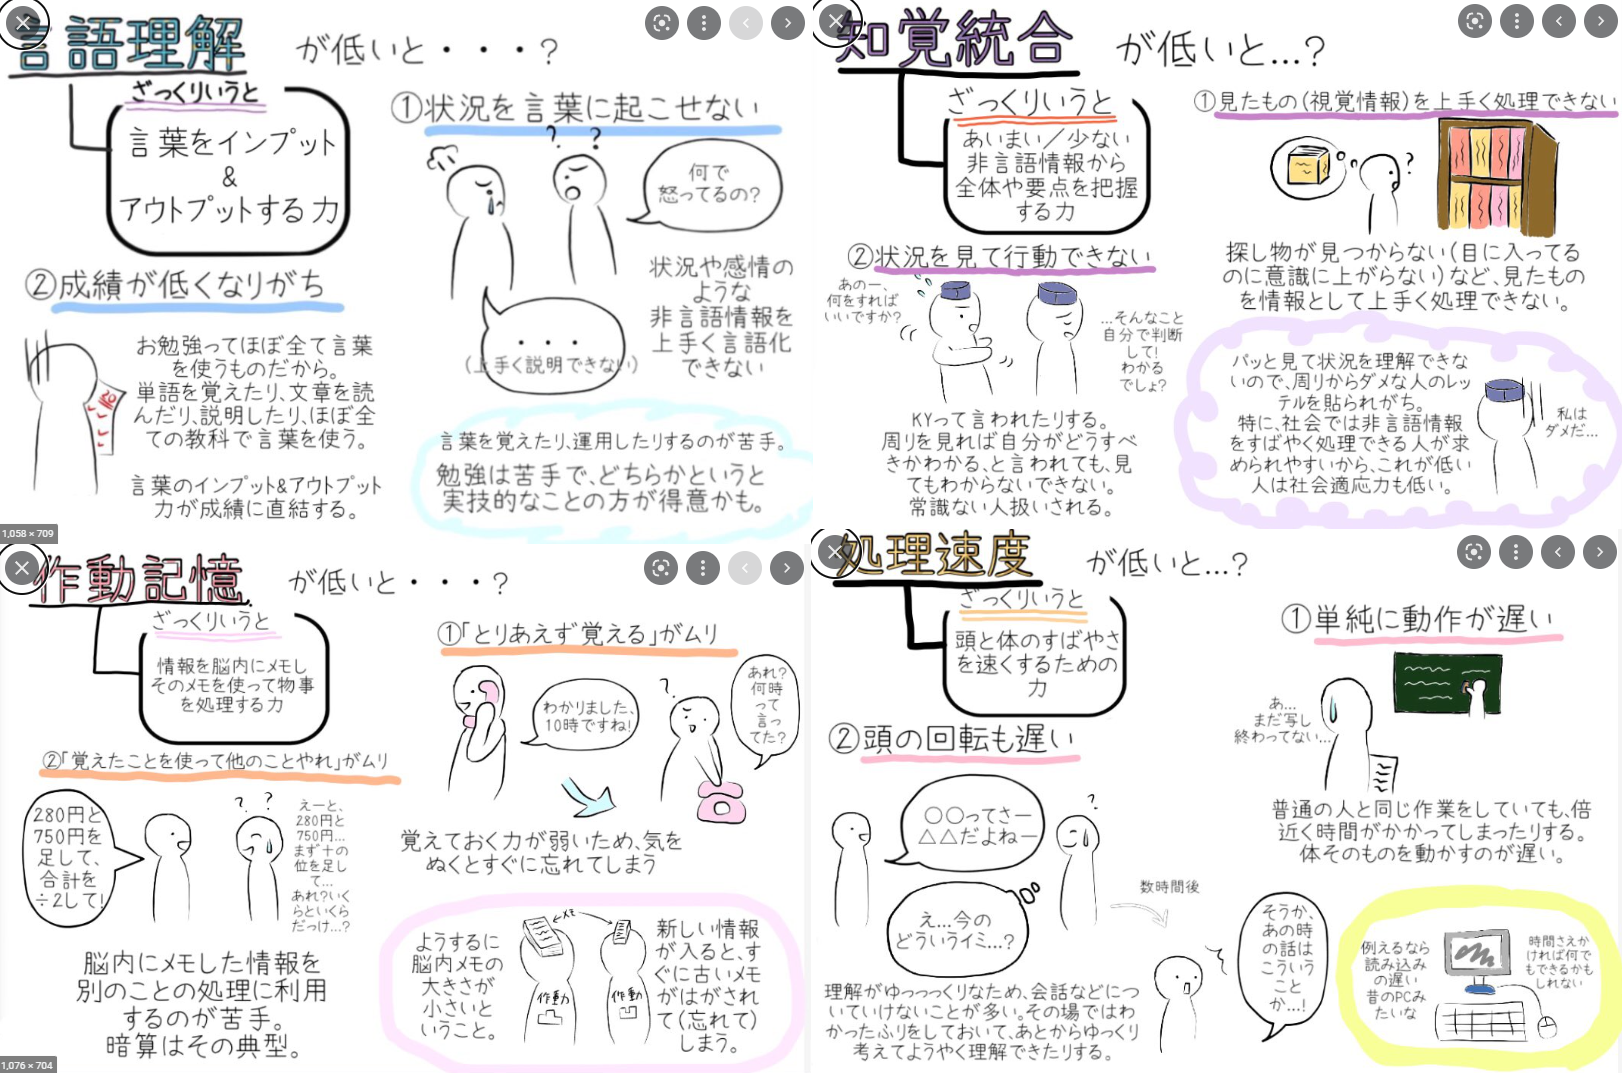 言語理解
が低いと・・・?
ざっくりいうと
言葉をインプット
&
アウトプットする力
①状況を言葉に起こせない
? ?
何で
怒ってるの?
・・・
(上手く説明できない)
状況や感情の
ような
非言語情報を
上手く言語化
できない
②成績が低くなりがち
お勉強ってほぼ全て言葉
を使うものだから。
単語を覚えたり、文章を読
んだり、説明したり、ほぼ全
ての教科で言葉を使う。
言葉のインプット&アウトプット
力が成績に直結する。
言葉を覚えたり、運用したりするのが苦手。
勉強は苦手で、どちらかというと
実技的なことの方が得意かも。
1,058 × 709
知覚統合
が低いと…?
ざっくりいうと
あいまい/少ない
非言語情報から
全体や要点を把握
する力
①見たもの(視覚情報)を上手く処理できない
?
探し物が見つからない(目に入ってる
のに意識に上がらない)など、見たもの
を情報として上手く処理できない。
②状況を見て行動できない
あのー、
何をすれば
いいですか?
…そんなこと
自分で判断
して!
わかる
でしょ?
KYって言われたりする。
周りを見れば自分がどうすべ
きかわかる、と言われても、見
てもわからないできない。
常識ない人扱いされる。
パッと見て状況を理解できな
いので、周りからダメな人のレッ
テルを貼られがち。
特に、社会では非言語情報
をすばやく処理できる人が求
められやすいから、これが低い
人は社会適応力も低い。
私は
ダメだ…
作動記憶
が低いと・・・?
ざっくりいうと
情報を脳内にメモし
そのメモを使って物事
を処理する力
①「とりあえず覚える」がムリ
わかりました、
10時ですね!
?
あれ?
何時
って
言っ
てた?
覚えておく力が弱いため、気を
ぬくとすぐに忘れてしまう
②「覚えたことを使って他のことやれ」がムリ
280円と
750円を
足して、
合計を
÷2して!
? ?
えーと、
280円と
750円…
まず十の
位を足し
て…
あれ?いく
らといくら
だっけ…?
脳内にメモした情報を
別のことの処理に利用
するのが苦手。
暗算はその典型。
ようするに
脳内メモの
大きさが
小さいと
いうこと。
メモ
作動
作動
新しい情報
が入ると、す
ぐに古いメモ
がはがされ
て(忘れて)
しまう。
1,076 × 704
処理速度
が低いと…?
ざっくりいうと
頭と体のすばやさ
を速くするための
力
①単純に動作が遅い
あ…
まだ写し
終わってない…
普通の人と同じ作業をしていても、倍
近く時間がかかってしまったりする。
体そのものを動かすのが遅い。
②頭の回転も遅い
○○ってさー
△△だよねー
?
え…今の
どういうイミ…?
数時間後
そうか、
あの時
の話は
こういう
こと
か…!
理解がゆっっっくりなため、会話などにつ
いていけないことが多い。その場ではわ
かったふりをしておいて、あとからゆっくり
考えてようやく理解できたりする。
例えるなら
読み込み
の遅い
昔のPCみ
たいな
時間さえか
ければ何で
もできるかも
しれない